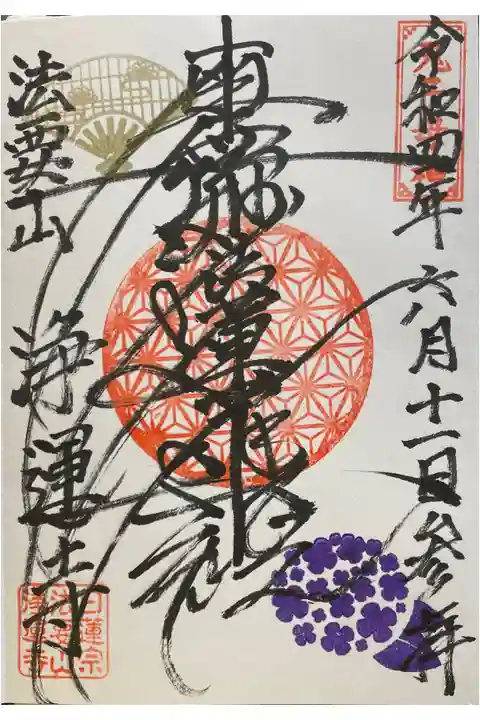 令和四年六月十一日参拝
南無妙法蓮華経
法要山 浄運寺
日蓮宗
法要山
浄運寺